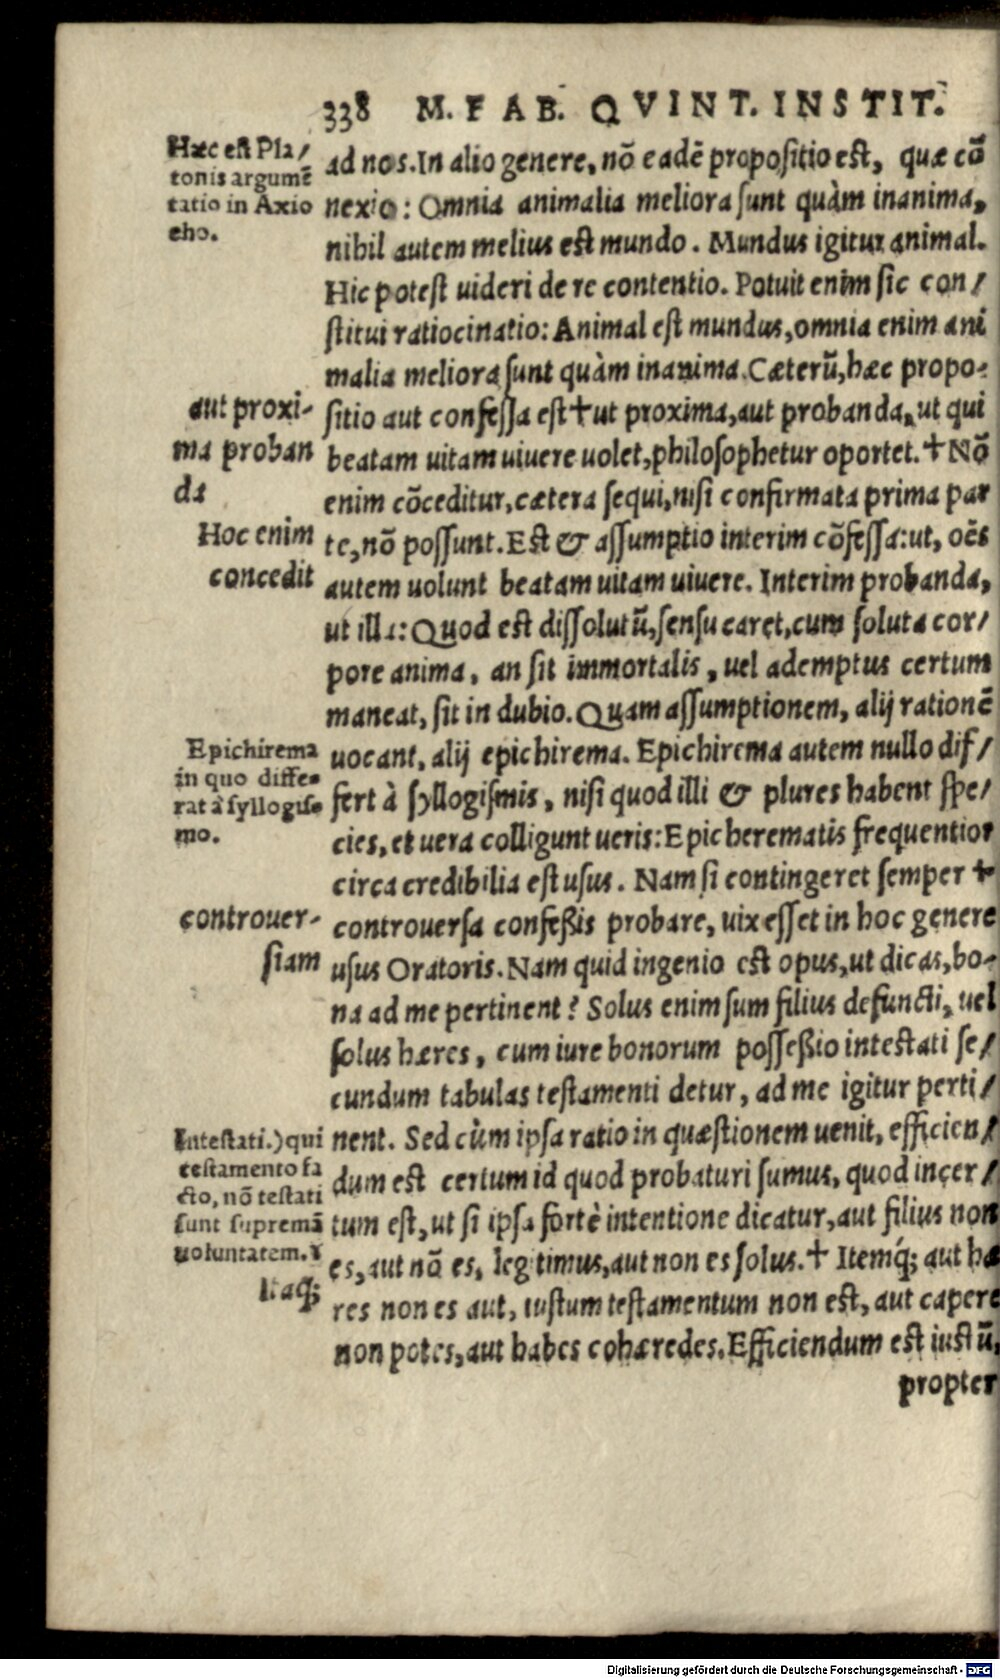 338 M. FAB. QVINT. INSTIT.
Hæc est Pla/
tonis argumẽ
tatio in Axio
cho.
ad nos. In alio genere, nõ eadẽ propositio est, quæ cõ
nexio: Omnia animalia meliora sunt quàm inanima,
nihil autem melius est mundo. Mundus igitur animal.
Hic potest uideri de re contentio. Potuit enim sic con/
stitui ratiocinatio: Animal est mundus, omnia enim ani
malia meliora sunt quàm inanima. Cæterũ, hæc propo-
aut proxi-
ma proban
da
sitio aut confessa est † ut proxima, aut probanda, ut qui
beatam uitam uiuere uolet, philosophetur oportet. † Nõ
enim cõceditur, cætera sequi, nisi confirmata prima par
Hoc enim
concedit
te, nõ possunt. Est & assumptio interim cõfessa: ut, oẽs
autem uolunt beatam uitam uiuere. Interim probanda,
ut illa: Quod est dissolutũ, sensu caret, cum soluta cor/
pore anima, an sit immortalis, uel ademptus certum
maneat, sit in dubio. Quam assumptionem, alij rationẽ
Epichirema
in quo diffe-
rat à syllogis-
mo.
uocant, alij epichirema. Epichirema autem nullo dif/
fert à syllogismis, nisi quod illi & plures habent spe/
cies, et uera colligunt ueris: Epicherematis frequentior
circa credibilia est usus. Nam si contingeret semper †
controuer-
siam
controuersa confeßis probare, uix esset in hoc genere
usus Oratoris. Nam quid ingenio est opus, ut dicas, bo-
na ad me pertinent? Solus enim sum filius defuncti, uel
solus hæres, cum iure bonorum posseßio intestati se/
cundum tabulas testamenti detur, ad me igitur perti/
Intestati.) qui
testamento fa
cto, nõ testati
sunt supremã
uoluntatem.
Itaq;
nent. Sed cùm ipsa ratio in quæstionem uenit, efficien/
dum est certum id quod probaturi sumus, quod incer/
tum est, ut si ipsa fortè intentione dicatur, aut filius non
es, aut nõ es, legitimus, aut non es solus. † Itemq́; aut hæ
res non es aut, iustum testamentum non est, aut capere
non potes, aut habes cohæredes. Efficiendum est iustũ,
propter
Digitalisierung gefördert durch die Deutsche Forschungsgemeinschaft - DFG